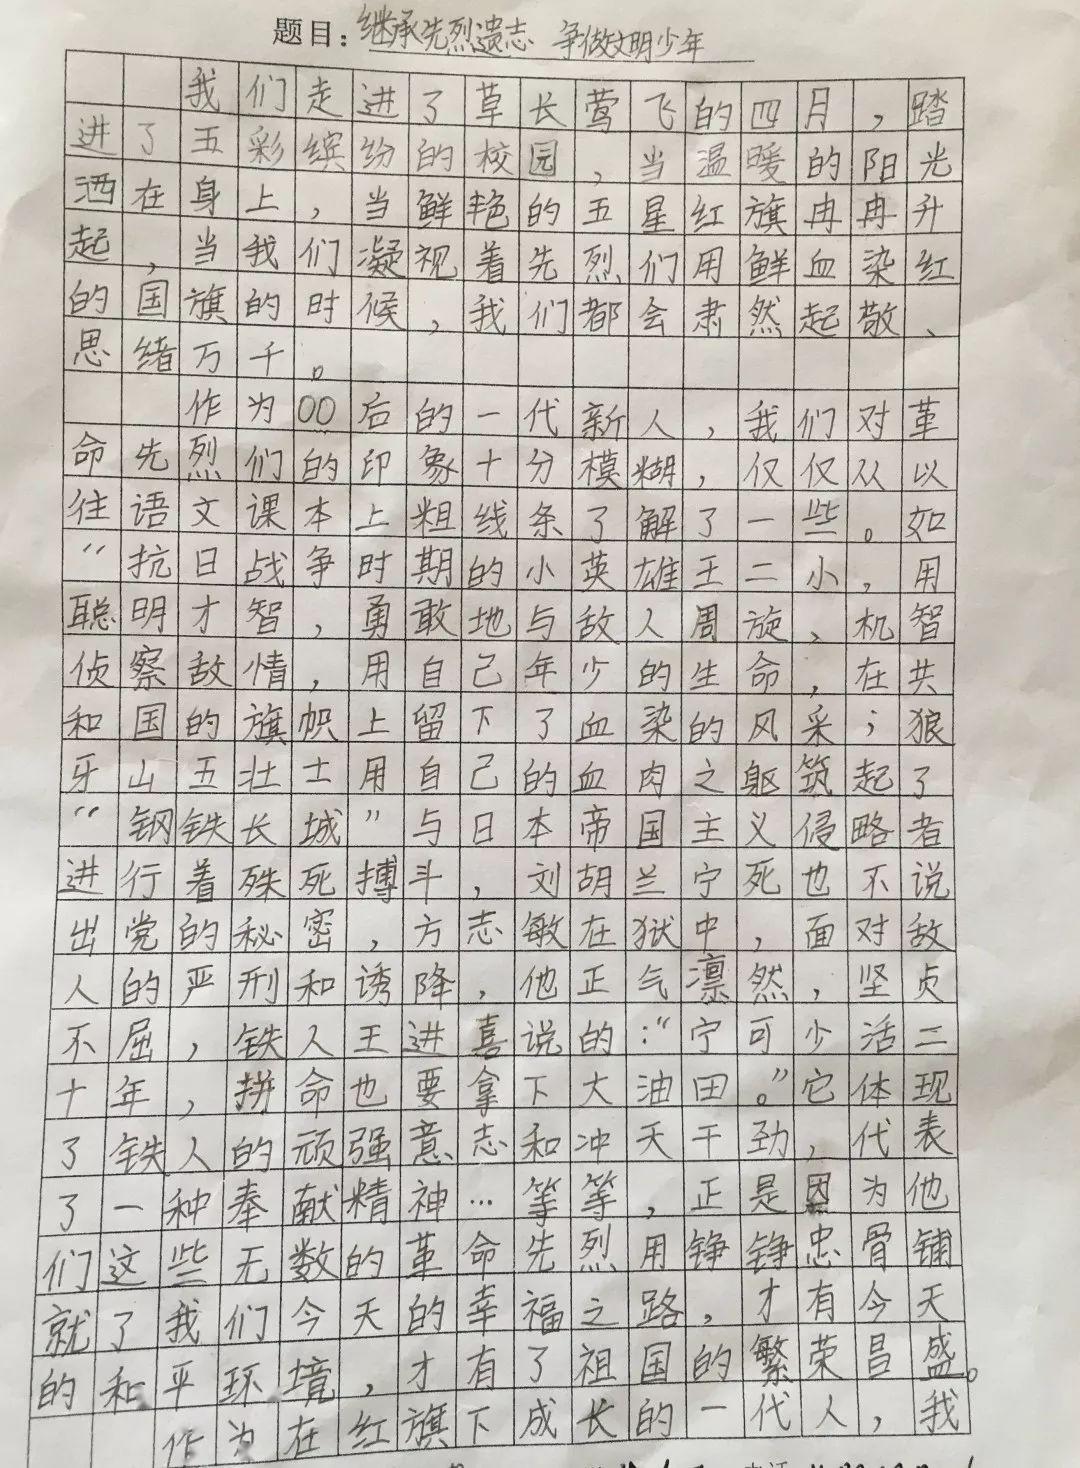 题目:继承先烈遗志 争做文明少年
我们走进了草长莺飞的四月,踏
进了五彩缤纷的校园,当温暖的阳光
洒在身上,当鲜艳的五星红旗冉冉升
起,当我们凝视着先烈们用鲜血染红
的国旗的时候,我们都会肃然起敬、
思绪万千。
作为00后的一代新人,我们对革
命先烈们的印象十分模糊,仅仅从以
往语文课本上粗线条了解了一些。如
“抗日战争时期的小英雄王二小,用
聪明才智,勇敢地与敌人周旋,机智
侦察敌情,用自己年少的生命,在共
和国的旗帜上留下了血染的风采;狼
牙山五壮士用自己的血肉之躯筑起了
“钢铁长城”与日本帝国主义侵略者
进行着殊死搏斗,刘胡兰宁死也不说
出党的秘密,方志敏在狱中,面对敌
人的严刑和诱降,他正气凛然,坚贞
不屈,铁人王进喜说的:“宁可少活二
十年,拼命也要拿下大油田。”它体现
了铁人的顽强意志和冲天干劲,代表
了一种奉献精神…等等,正是因为他
们这些无数的革命先烈用铮铮忠骨铺
就了我们今天的幸福之路,才有今天
的和平环境,才有了祖国的繁荣昌盛。
作为在红旗下成长的一代人,我